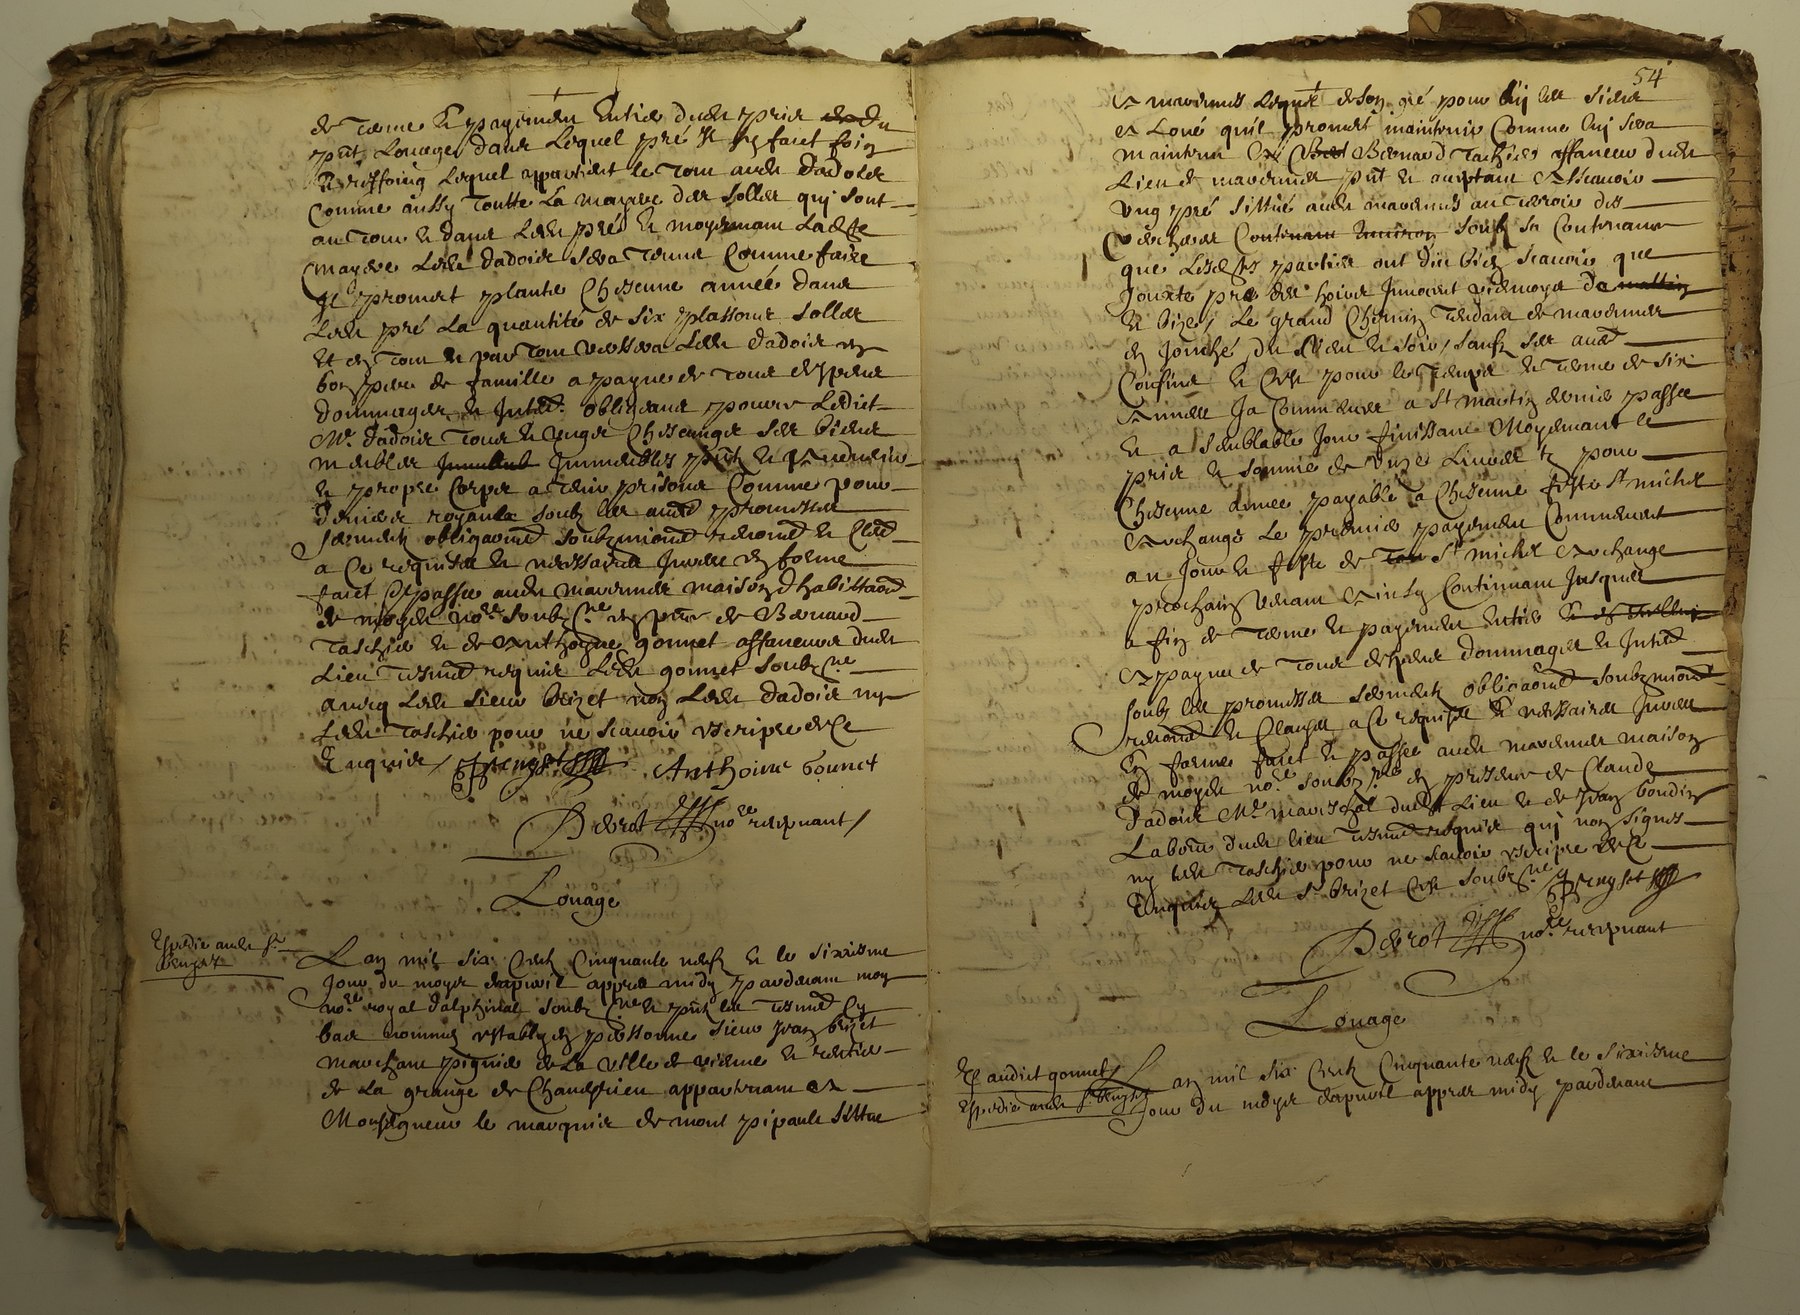 de terme & payement entier dud prix et du
pnt louage dans lequel pré il se faict foin
& reffoing lequel appartient le tout aud dadoles
Comme aussy toutte la mayere des solles quj sont
au tour & dans led pré & moyenant lade
mayere led dadoies sera tenu comme faire
Il promet planter Chescune année dans
led pré la quantité de six plassons solles
Et en tout & par tout versera led dadoies en
bon pere de famille a payne de tous despens
dommages & Interestz obligeant pource Ledict
Me dadoies tous & Ungs Chescungs ses biens
meubles Immeubles pntz & advenir
& propre Corps a tenir prison Comme pour
deniers royaulx soubz les aues promesses
sermentz obligaons soubzmions renons & Claes
a Ce requises & necessaires Jurees en forme
faict & passe aud mavernes maison dhabittaon
de moyd nore soubzne en pnce de Bernard
Taschier & de Anthoyne gonnet affaneurs dud
Lieu tesmoins requis led gonnet soubzne
aveq led sieur brizet non led dadoies ny
led Taschier pour ne scavoir escripre de ce
Enquis / Anthoine Gonnet
Debrot nore recepvant /
Louage
Expedie aud sr
Lan mil six Centz Cinquante neufz & le sixiesme
Jour du moys dapvril appres midy pardevant moy
nore royal dalphinal soubzne & pntz les tesmoins cy
bas nommes estably en personne sieur Jean brizet
marchant pignie de la ville de vienne & rentier
de la grange de Chandieu appartenant a
Monseigneur le marquis de mont pipault sittue
54
a mavernes lequel de son gré pour luy les siens
a Loué quil promet maintenir Comme luy sera
maintenu a Bernard Taschier affaneur dud
Lieu de mavernes pnt & aceptant Ascavoir
Ung pré sittué aud mavernes au terroir des
Verchere Contenant environ soubz sa Contenance
que lesdes parties ont dit bien scavoir que
Jouxte pré des hoirs Innocent
& bize, le grand Chemin tendant de mavernes
en Jonché du vent & soir, sauf ses aues
Confins & Cest pour le temps & terme de six
Annees Ja Commences a St martin dernier passee
& a semblable Jour finissant Moyenant le
prix & somme de Unze Livres tz pour
Chescune année payable a Chescune feste St michel
Archange Le premier payement Commencent
au Jour & feste de St michel Archange
prochain venant Ainsy Continuant Jusques
a fin de terme & payement entier
A payne de tous despens dommages & Interestz
soubz les promesses sermentz obligaons soubzmions
renons & Clauses a Ce requises & necessaires Jurees
En forme faict & passe aud mavernes maison
de moyd nore soubzne en presence de Claude
dadoies Me mareschal dud Lieu & de Jean boudin
Labour dud lieu tesmoins requis quj non signes
ny led Taschier pour ne scavoir escripre de ce
Enquis led sr brizet Cest soubzne
Debrot nore recepvant
Louage
Ex audict gonnet
Expedie aud sr
Lan mil six Centz Cinquante neufz & le sixiesme
Jour du moys dapvril appres midy pardevant